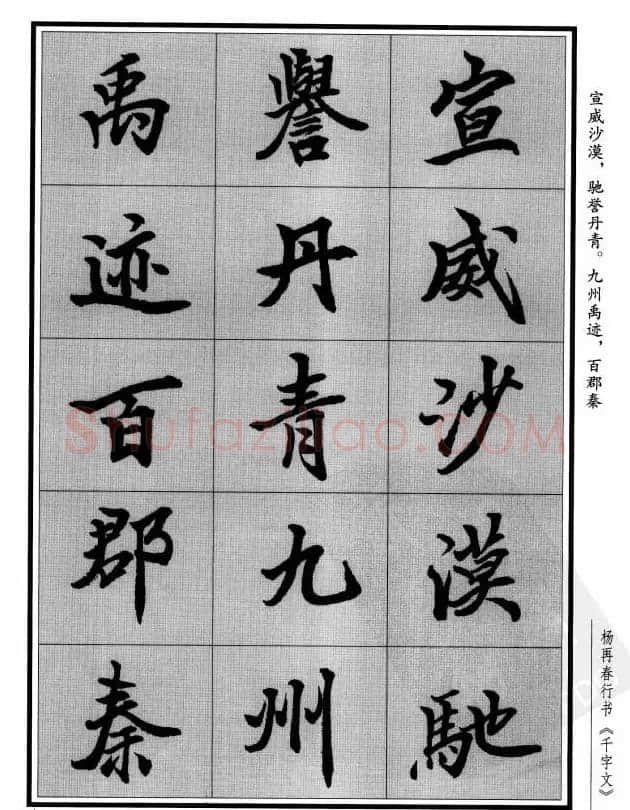 宣威沙漠，驰誉丹青。九州禹迹，百郡秦
杨再春行书《千字文》
宣威沙漠馳
譽丹青九州
禹迹百郡秦
Shufaziliao.COM